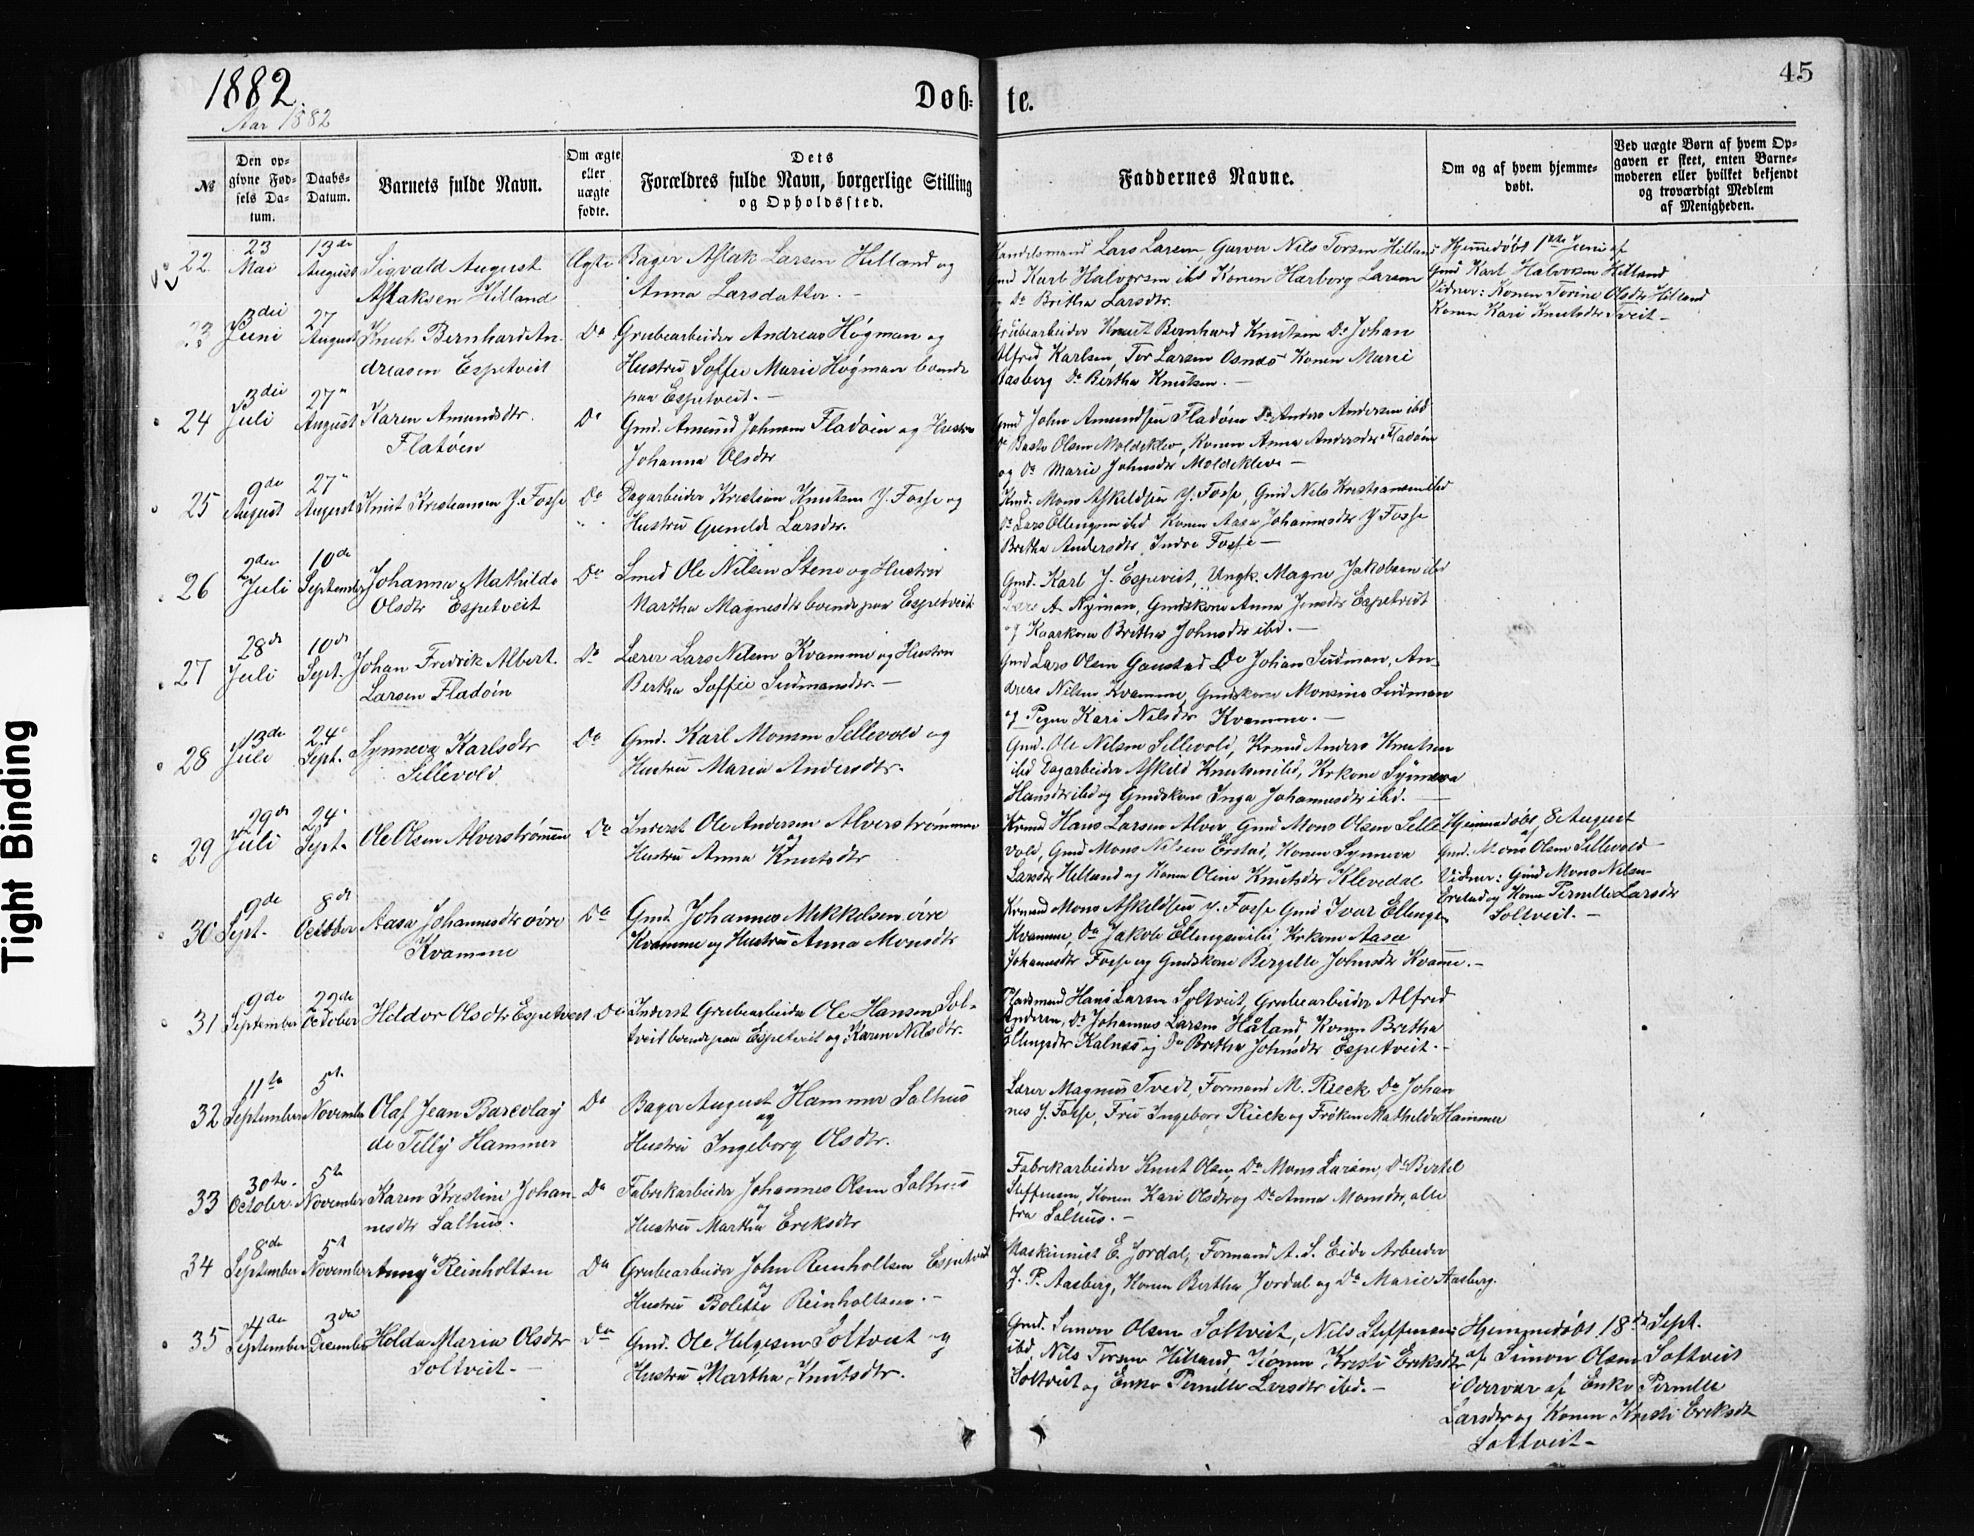 1882.
Aar 1882
Døb-
te.
45
Tight Binding
No
Den op-
givne Fød-
sels Da-
tum.
Daabs-
Datum.
Barnets fulde Navn.
Om ægte
eller
uægte
fødte.
Dets
Forældres fulde Navn, borgerlige Stilling
og Opholdssted.
Faddernes Navne.
Om og af hvem hjemme-
døbt.
Ved uægte Børn af hvem Op-
gaven er skeet, enten Barne-
moderen eller hvilket bekjendt
og troværdigt Medlem
af Menigheden.
22
23
Mai
13de
August
Sigvald August
Aslaksen Hilland
Ægte
Bager Aslak Larsen Hilland og
Anna Larsdatter. -
Handelsmand Lars Larsen, Garver Nils Torsen Hilland
Gmd Karl Halvorsen ibd Konen Harborg Larsen
Do Britha Larsdtr.
Hjemmedøbt 1ste Juni af
Gmd Karl Halvorsen Hilland
Vidner: Konen Torine Olsdtr Hilland
Konen Kari Knutsdtr Tveit -
23
3die
Juni
27
August
Knut Bernhard An-
dreasen Espetveit
Do
Grubearbeider Andreas Høgman og
Hustru Soffie Marie Høgman boende
paa Espetveit. -
Grubearbeider Knut Bernhard Knutsen Do Johan
Alfred Karlsen, Tor Larsen Osnes Konen Marie
Aasberg Do Bertha Knutsen. -
24
3die
Juli
27
August
Karen Amundsdtr.
Flatøen
Do
Gmd. Amund Johnsen Fladøen og Hustru
Johanna Olsdtr
Gmd John Amundsen Fladøen Do Anders Andersen ibd
Olsen Moldekleiv, Konen Anna Andersdtr Fladøen
og Do Marie Johnsdtr Moldekleiv -
25
9de
August
27
August
Knut Kristiansen Y. Fosse
Do
Dagarbeider Kristian Knutsen Y. Fosse og
Hustru Gunilde Larsdtr.
Mons Askildsen Y. Fosse, Gmd Nils Kristiansen ibd
Do Lars Ellingsen ibd Konen Aasa Johannesdtr Y Fosse
Britha Andersdtr Indre Fosse -
26
2den
Juli
10de
September
Johanna Mathilde
Olsdtr Espetveit
Do
Smed Ole Nilsen Stene og Hustru
Martha Magnesdtr boende paa Espetveit
Gmd. Karl J. Espeveit, Ungk. Magne Jakobsen ibd
A. Nyman, Gmdskone Anna Jensdtr Espetveit
og Britha Johnsdtr ibd. -
27
28de
Juli
10de
Sept.
Johan Fredrik Albert
Larsen Fladøen
Do
Lærer Lars Nilsen Kvamme og Hustru
Bertha Soffie Sudmansdtr. -
Gmd Lars Olsen Gaustad Do Johan Sudman, An-
dreas Nilsen Kvamme, Gmdskone Monsine Sudman
og Pigen Kari Nilsdtr Kvamme. -
28
13de
Juli
24
Sept.
Synneva Karlsdtr
Sellevold
Do
Gmd. Karl Monsen Sellevold og
Hustru Maria Andersdtr.
Gmd. Ole Nilsen Sellevold, Krmd Anders Knutsen
ibd Dagarbeider Askild Knutsen ibd, Krkone Synneva
Hansdtr ibd og Gmdskone Inga Johannesdtr ibd. -
29
29de
Juli
24
Sept.
Ole Olsen Alverstrømmen
Do
Inderst Ole Andersen Alverstrømmen
og
Hustru Anna Knutsdtr
Krmd Hans Larsen Alver, Gmd Mons Olsen Selle-
vold, Gmd Mons Nilsen Erstad, Konen Synneva
Larsdtr Hilland og Konen Oline Knutsdtr Klevedal
Hjemmedøbt 8 August
af
Gmd. Mons Olsen Sellevold
Vidner: Gmd Mons Nilsen
Erstad og Kone Pernille Larsdtr
Soltveit. -
30
9de
Sept.
8de
October
Aasa Johannesdtr øvre
Kvamme
Do
Gmd. Johannes Mikkelsen øvre
Kvamme og Hustru Anna Monsdtr
Krmand Mons Askildsen y. Fosse Gmd Ivar Ellings.
Kvamme, Do Jakob Ellingsen ibd, Krkone Aasa
Johannesdtr Fosse og Gmdskone Bergitte Johnsdtr Kvamme. -
31
9de
September
22de
October
Hildor Olsdtr Espetveit
Do
Inderst Grubearbeider Ole Hansen Sol-
tveit boende paa Espetveit og Karen Nilsdtr.
Pladsmand Hans Larsen Soltveit, Grubearbeider Alfred
Andersen, Do Johannes Larsen Håland, Konen Britha
Ellingsdtr Kalnes og Do Britha Johnsdtr Espetveit. -
32
11te
September
5te
November
Olaf Jean Barcolay
de Telly Hammer
Do
Bager August Hammer Salhus
og
Hustru Ingeborg Olsdtr.
Lærer Magnus Tvedt, Formand M. Rieck Do Johan
nes Y. Fosse, Fru Ingeborg Rieck og Frøken Mathilde Hammer
33
30te
October
5te
November
Karen Kristine Johan-
nesdtr Salhus.
Do
Fabrikarbeider Johannes Olsen Salhus
og
Hustru Martha Eriksdtr
Fabrikarbeider Knut Olsen, Do Mons Larsen, Do Bertel
Steffensen, Konen Kari Olsdtr og Do Anna Monsdtr, alle
fra Salhus. -
34
8de
September
5te
November
Anny Reinholtsen
Do
Grubearbeider John Reinholtsen Espetveit
og
Hustru Bolette Reinholtsen. -
Maskinmist E. Jordal, Formand A. S. Eide Arbeider
J. P. Aasberg, Konen Bertha Jordal og Do Marie Aasberg.
35
4de
September
3die
December
Holda Maria Olsdtr
Soltveit -
Do
Gmd. Ole Helgesen Soltveit og
Hustru Martha Knutsdtr.
Gmd. Simon Olsen Soltveit, Nils Steffensen
ibd Nils Torsen Hilland, Konen Kristi Eriksdtr
Soltveit og Enke Pernille Larsdtr ibd. -
Hjemmedøbt 18de Sept.
af Simon Olsen Soltveit
i Overvær af Enke Pernille
Larsdtr og Konen Kristi Eriksdt
Soltveit -